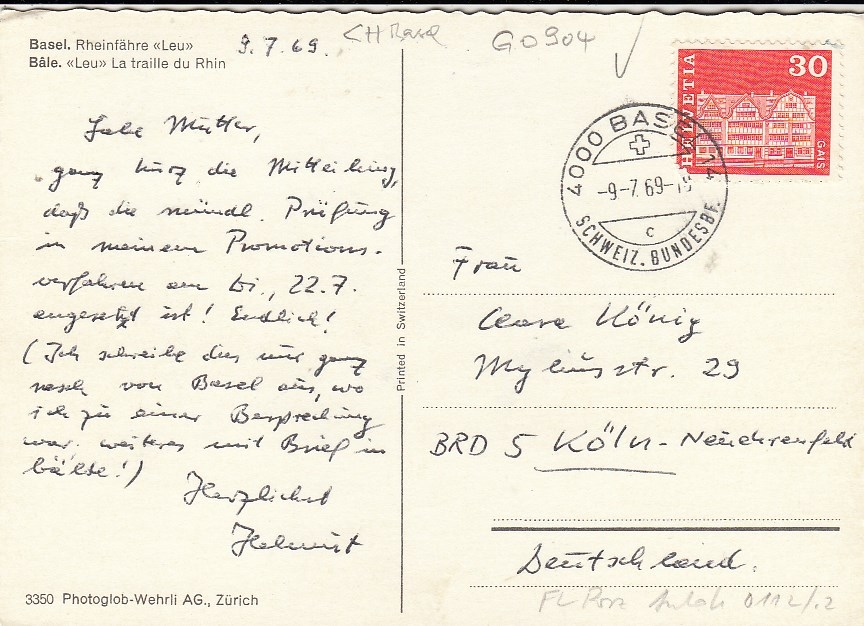 Basel. Rheinfähre «Leu»
Bâle. «Leu» La traille du Rhin
9.7.69.
CH Basel
GO904
Liebe Mutter,
ganz kurz die Mitteilung,
daß die mündl. Prüfung
in meinem Promotions-
verfahren am Di., 22.7.
angesetzt ist! Endlich!
(Ich schreibe dies nur ganz
rasch von Basel aus, wo
ich zu einer Besprechung
war. weiteres mit Brief in
bälde!)
Herzlichst
Helmut
3350 Photoglob-Wehrli AG., Zürich
Printed in Switzerland
HELVETIA
30
GAIS
4000 BASEL 14
-9-7.69-19
c
SCHWEIZ. BUNDESBF.
Frau
Clara König
Myliusstr. 29
BRD 5 Köln-Neuehrenfeld
Deutschland.
0112/.2